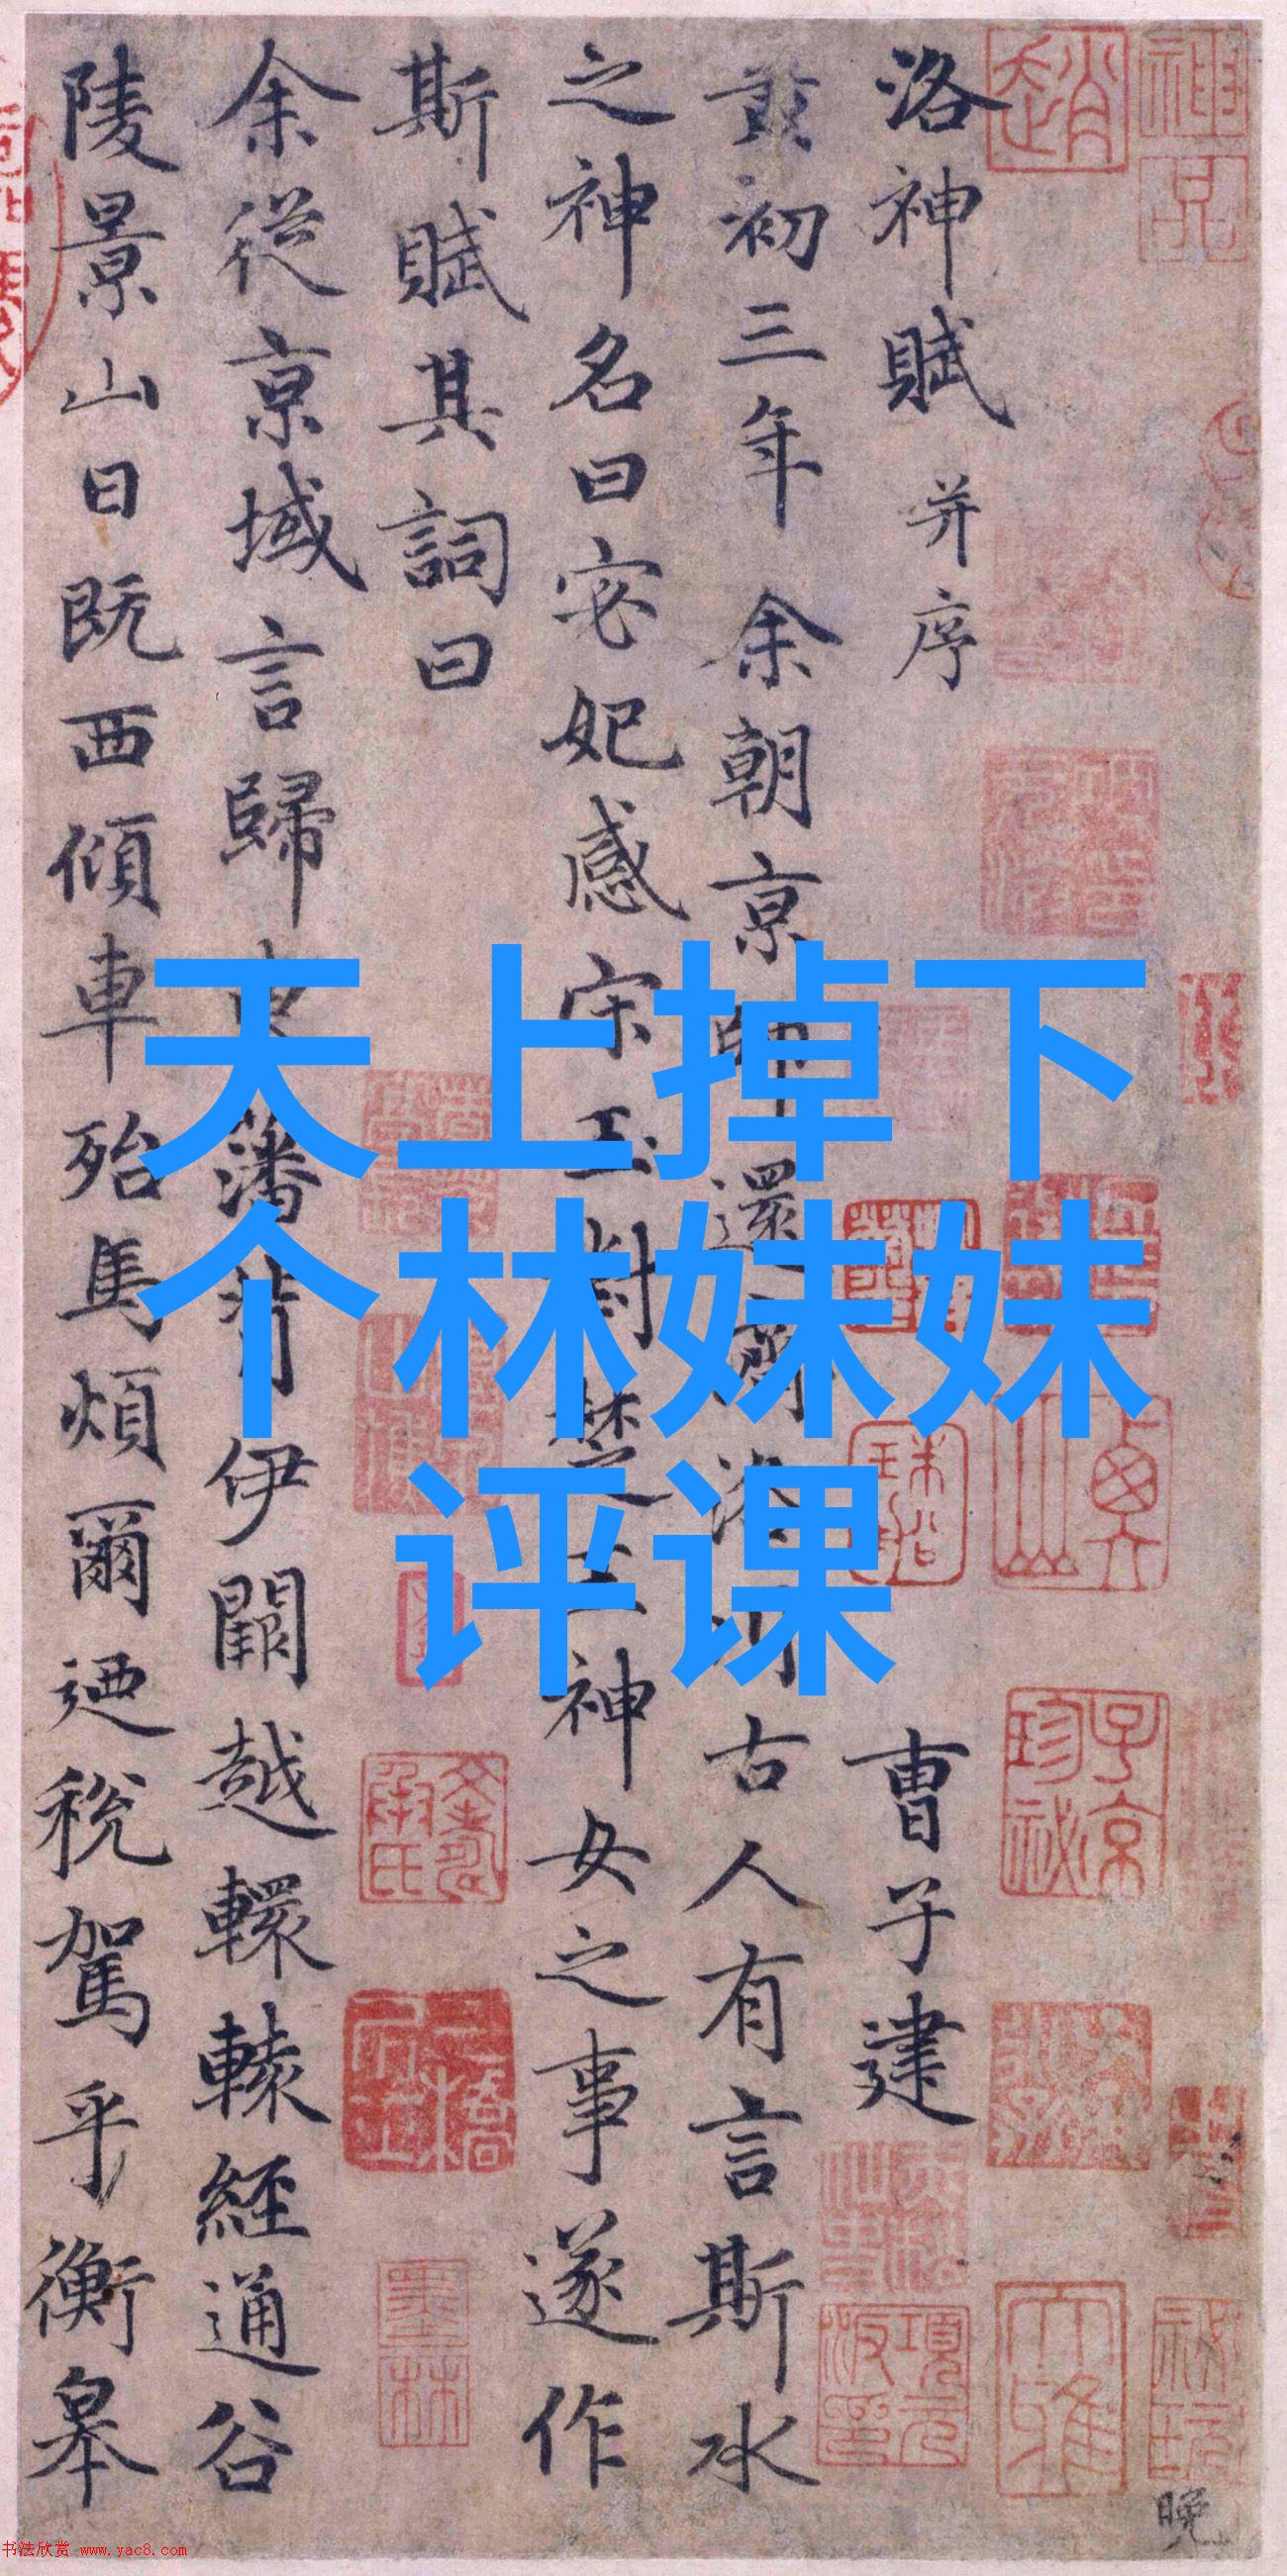 天上掉下
个林妹妹
评课
洛神賦 并序 曹子建
黃初三年余朝京師還濟洛川古人有言斯水
之神名曰宓妃感宋玉對楚王神女之事遂作
斯賦其詞曰
余從京域言歸東藩背伊闕越轘轅經通谷
陵景山日既西傾車殆馬煩爾迺稅駕乎衡皋
晚
墨林
书法欣赏 www.yac8.com